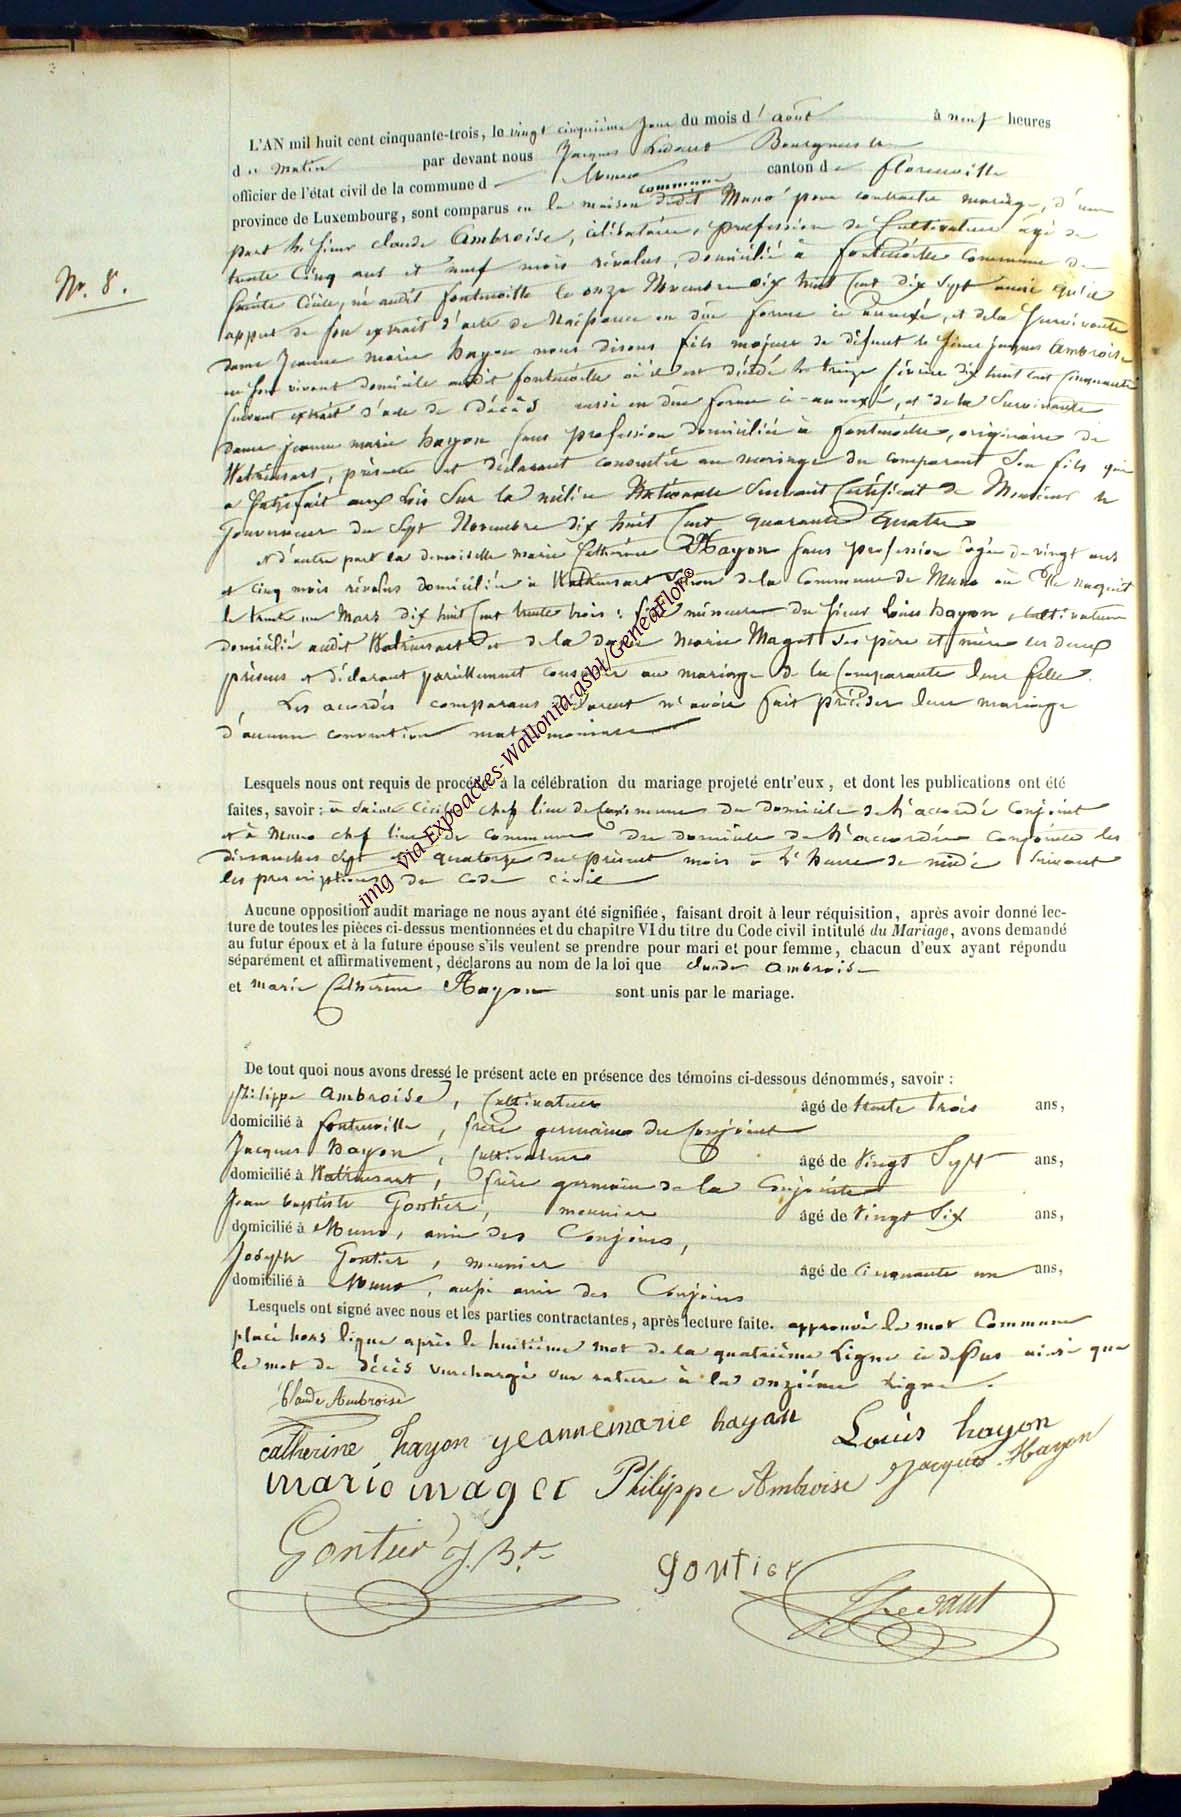 L'AN mil huit cent cinquante-trois, le vingt cinquième jour du mois d'août à neuf heures
du matin par devant nous Jacques Bourgmestre
officier de l'état civil de la commune de Muno canton de florenville
commune
province de Luxembourg, sont comparus en la maison dudit Muno pour contracter mariage, d'une
part le sieur claude Ambroise, célibataire, profession de Cultivateur âgé de
trente cinq ans et neuf mois révolus, domicilié à fontenoille Commune de
Sainte Cécile, né audit fontenoille le onze Novembre dix huit Cent dix Sept ainsi qu'il
appert de son extrait d'acte de Naissance en due forme ci annexé, et dela Survivante
dame Jeanne marie hayon nous disons fils majeur de défunt le sieur jacques Ambroise
en son vivant domicilié audit fontenoille où il est décédé le treize février dix huit cent Cinquante
suivant extrait d'acte de Décès aussi en due forme ci-annexé, et de la Survivante
dame jeanne marie hayon sans profession domiciliée à fontenoille, originaire de
Watrinsart, présente et déclarant consentir au mariage du comparant Son fils qui
a satisfait aux Lois Sur la milice Nationale Suivant Certificat de Monsieur le
gouverneur du Sept Novembre dix huit Cent quarante quatre
et d'autre part la demoiselle marie Catherine Hayon Sans profession âgée de vingt ans
et cinq mois révolus domiciliée à Watrinsart Section dela Commune de Muno où Elle naquit
le trente un Mars dix huit Cent trente trois : fille mineure du sieur Louis hayon, cultivateur
domicilié audit Watrinsart et de la dame Marie Maget Ses père et mère les deux
présens et déclarant pareillement consentir au mariage de la Comparante leur fille.
Les accordés comparans déclarent n'avoir fait précéder leur mariage
d'aucune convention matrimoniale
Lesquels nous ont requis de procéder à la célébration du mariage projeté entr'eux, et dont les publications ont été
faites, savoir : à Sainte Cécile chef lieu de Commune du domicile de l'accordé Conjoint
et à Muno chef lieu de commune du domicile de l'accordée Conjointe les
dimanches Sept et quatorze du présent mois à l'heure de midi Suivant
les prescriptions du Code civil
Aucune opposition audit mariage ne nous ayant été signifiée, faisant droit à leur réquisition, après avoir donné lec-
ture de toutes les pièces ci-dessus mentionnées et du chapitre VI du titre du Code civil intitulé du Mariage, avons demandé
au futur époux et à la future épouse s'ils veulent se prendre pour mari et pour femme, chacun d'eux ayant répondu
séparément et affirmativement, déclarons au nom de la loi que claude Ambroise
et marie Catherine Hayon sont unis par le mariage.
De tout quoi nous avons dressé le présent acte en présence des témoins ci-dessous dénommés, savoir :
Philippe Ambroise, Cultivateur âgé de trente trois ans,
domicilié à fontenoille, frère germain du Conjoint
Jacques Hayon, Cultivateur âgé de Vingt Sept ans,
domicilié à Watrinsart, frère germain de la Conjointe
Jean baptiste Gontier, meunier âgé de Vingt Six ans,
domicilié à Muno, ami des Conjoins,
Joseph Gontier, meunier âgé de cinquante un ans,
domicilié à Muno, aussi ami des Conjoins
Lesquels ont signé avec nous et les parties contractantes, après lecture faite. approuvé le mot Commune
placé hors ligne après le huitième mot de la quatrième Ligne ci dessus ainsi que
le mot de décès surchargé sur rature à la onzième Ligne.
Claude Ambroise
catherine hayon yeannemarie hayan Louis hayon
marie maget Philippe Ambroise Jacques Hayon
Gontier J. Bte
gontier
Nr. 8.
img via Expoactes-Wallonia-asbl/GeneaFlor©